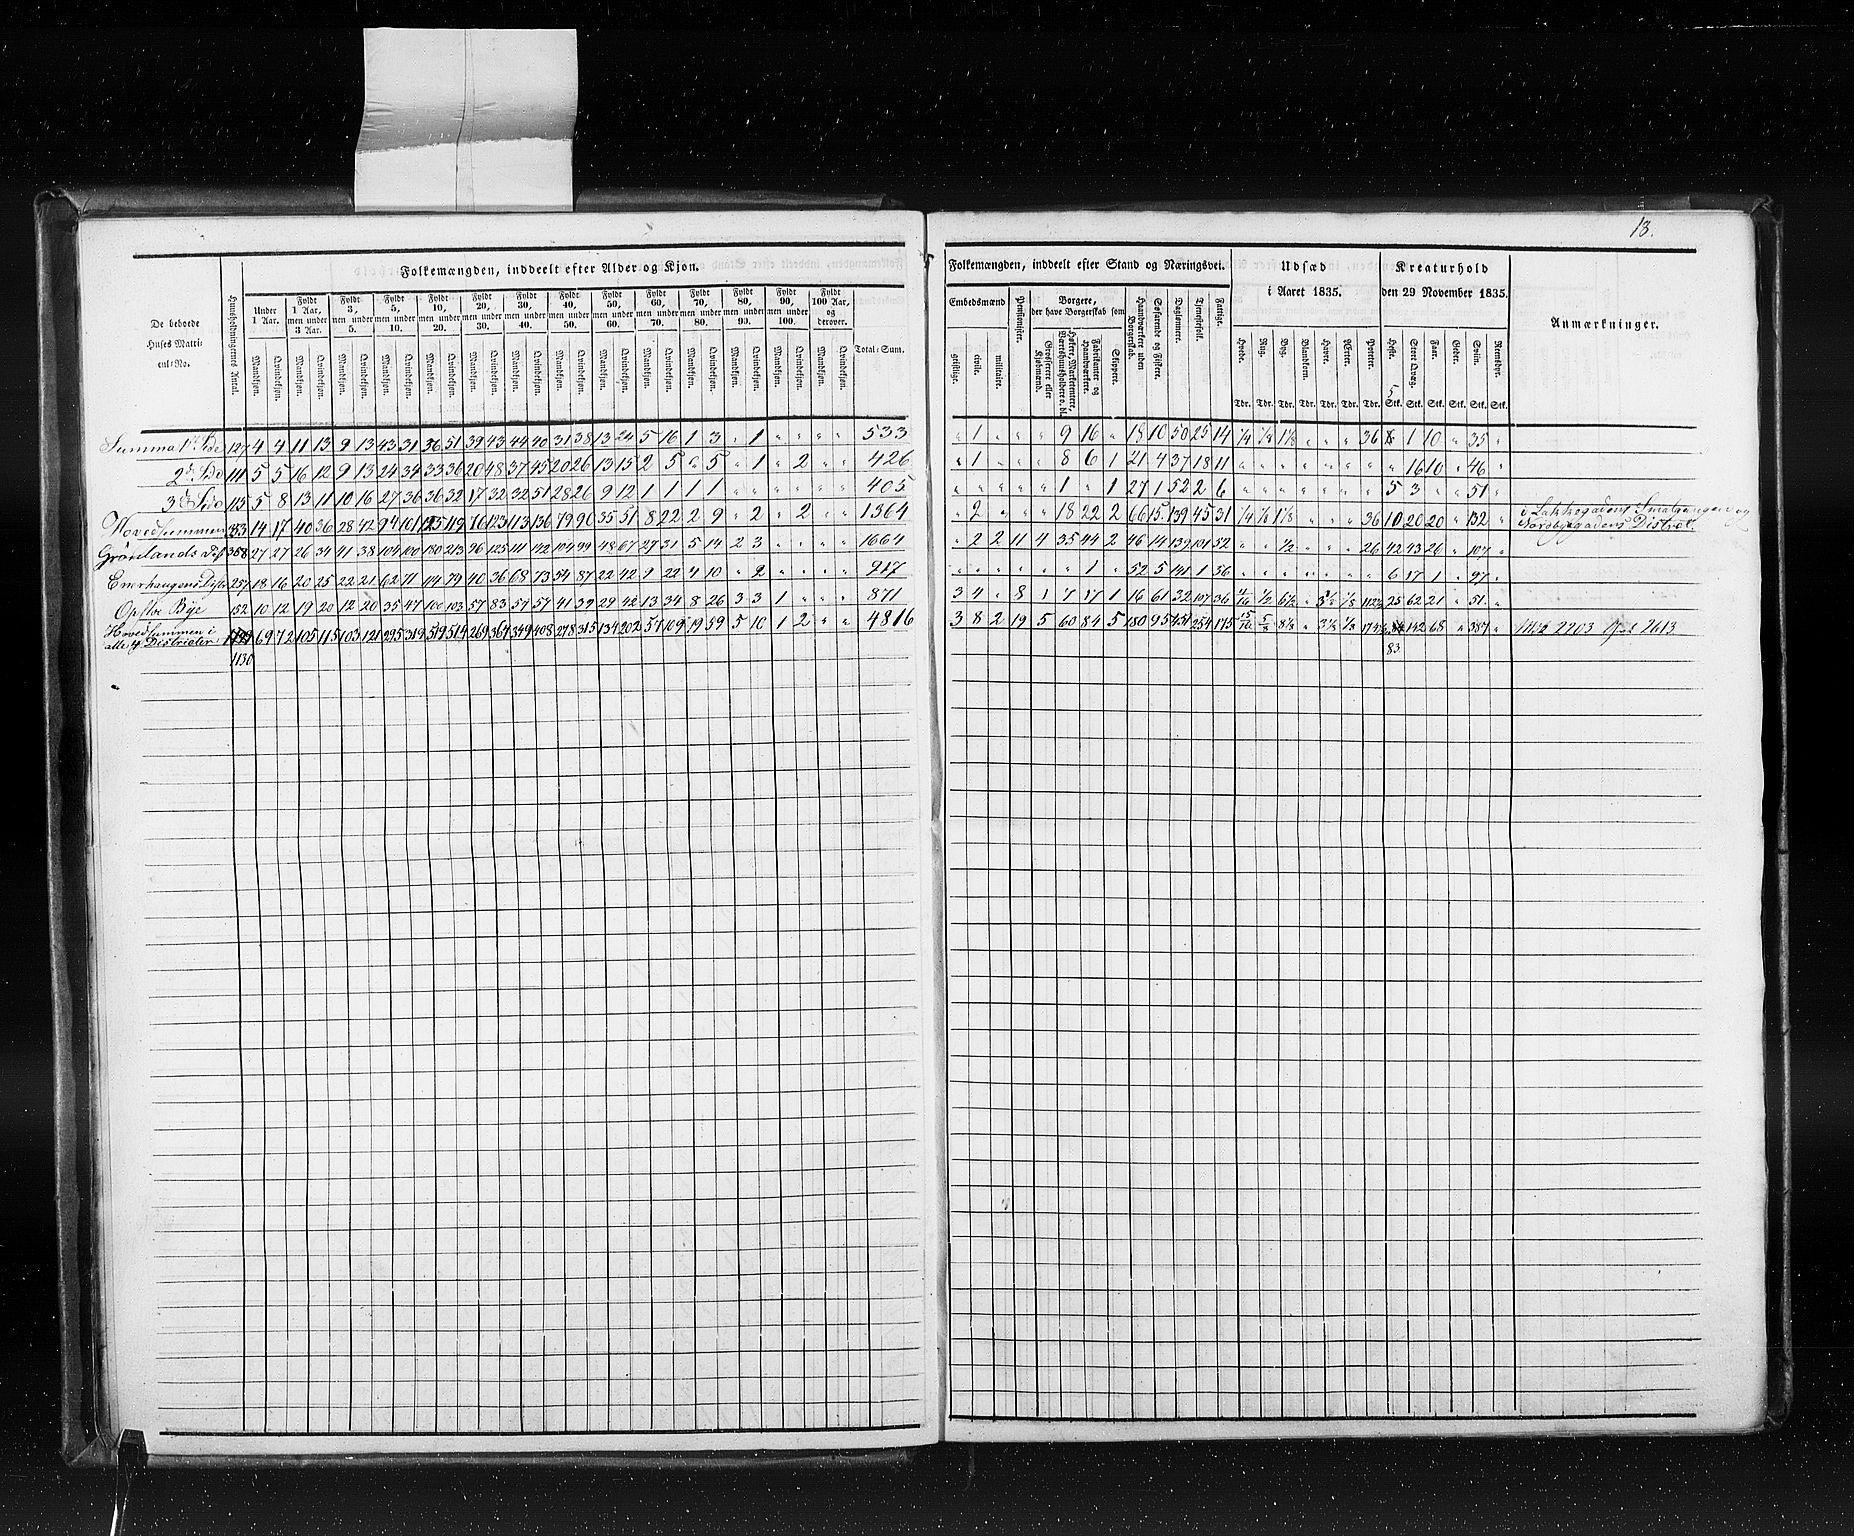 13.
Folkemængden, inddeelt efter Alder og Kjøn.
De beboede Huses Matricul-No.
Huusholdningernes Antal.
Under 1 Aar.
Fyldt 1 Aar, men under 3 Aar.
Fyldt 3, men under 5.
Fyldt 5, men under 10.
Fyldt 10, men under 20.
Fyldt 20, men under 30.
Fyldt 30, men under 40.
Fyldt 40, men under 50.
Fyldt 50, men under 60.
Fyldt 60, men under 70.
Fyldt 70, men under 80.
Fyldt 80, men under 90.
Fyldt 90, men under 100.
Fyldt 100 Aar, og derover.
Mandkjøn. Qvindekjøn.
Total-Sum.
Folkemængden, inddeelt efter Stand og Næringsvei.
Embedsmænd
geistlige. civile. militaire.
Pensionister.
Borgere, der have Borgerskab som
Grosserere eller Kjøbmænd.
Høkere, Marketentere, Værtshuusholdere o. dl.
Fabrikanter og Haandværkere.
Skippere.
Haandværkere uden Borgerskab.
Søfarende og Fiskere.
Daglønnere.
Tjenestefolk.
Fattige.
Udsæd i Aaret 1835.
Hvede. Rug. Byg. Blandkorn. Havre. Ærter. Poteter.
Tdr. Tdr. Tdr. Tdr. Tdr. Tdr. Tdr.
Kreaturhold den 29 November 1835.
Heste. Stort Qvæg. Faar. Geder. Sviin. Rensdyr.
Stk. Stk. Stk. Stk. Stk. Stk.
Anmærkninger.
Summa 1ste Side 127 4 4 11 13 9 13 43 31 36 51 39 43 44 40 31 38 13 24 5 16 1 3 " 1 " " " " 533 " 1 " " " 9 16 " 18 10 50 25 14 1/4 1/8 1 1/8 " " " 36 1 10 " 35 "
2d Side 111 5 5 16 12 9 13 24 34 33 36 20 48 37 45 20 26 13 15 2 5 " 5 " 1 " 2 " " 426 " 1 " " " 8 6 1 21 4 37 18 11 " " " " " " " " 16 10 " 46 "
3d Side 115 5 8 13 11 10 16 27 36 36 32 17 32 32 51 28 26 9 12 1 1 1 1 " " " " " " 405 " " " " " 1 " 1 27 1 52 2 6 " " " " " " " 5 3 " " 51 "
Hovedsummen 353 14 17 40 36 28 42 94 101 119 76 123 113 136 79 90 35 51 8 22 2 9 " 2 " 2 " " 1364 " 2 " " " 18 22 2 66 15 139 45 31 1/4 1/8 1 1/8 " " " 36 10 20 20 " 132 " i Lakkegadens Smalgangens og
Grønlands Dist 368 27 27 26 34 41 38 104 100 180 213 96 125 111 142 104 99 48 67 27 31 5 14 2 3 " " " " 1664 " 2 2 11 4 35 44 2 46 14 139 101 52 " " 1/2 " " " 26 42 43 26 " 107 "
Enerhaugens Distr 257 18 16 20 25 22 21 62 71 114 79 40 36 68 73 54 87 22 42 9 22 4 10 " 2 " " " " 917 " " " " " " 1 " 52 5 141 1 36 " " " " " " " 6 17 1 " 97 "
Opsloe Bye 152 10 12 19 20 12 20 35 47 100 103 57 83 57 57 41 39 29 42 13 34 8 26 3 3 1 " " " 871 3 4 " 8 1 7 17 1 16 61 32 107 36 1/2 6 1/2 " 3 1/2 1/8 112 1/2 25 62 21 " 51 "
Hovedsummen i alle 4 Districter 69 72 105 115 103 121 295 319 519 514 269 367 349 408 278 315 134 202 57 109 19 59 5 10 1 2 " " 4816 3 8 2 19 5 60 84 5 180 95 451 254 175 8 1/8 " 3 1/2 1/8 142 68 " 387 " Mdk 2203 Qvk 2613
1130
83